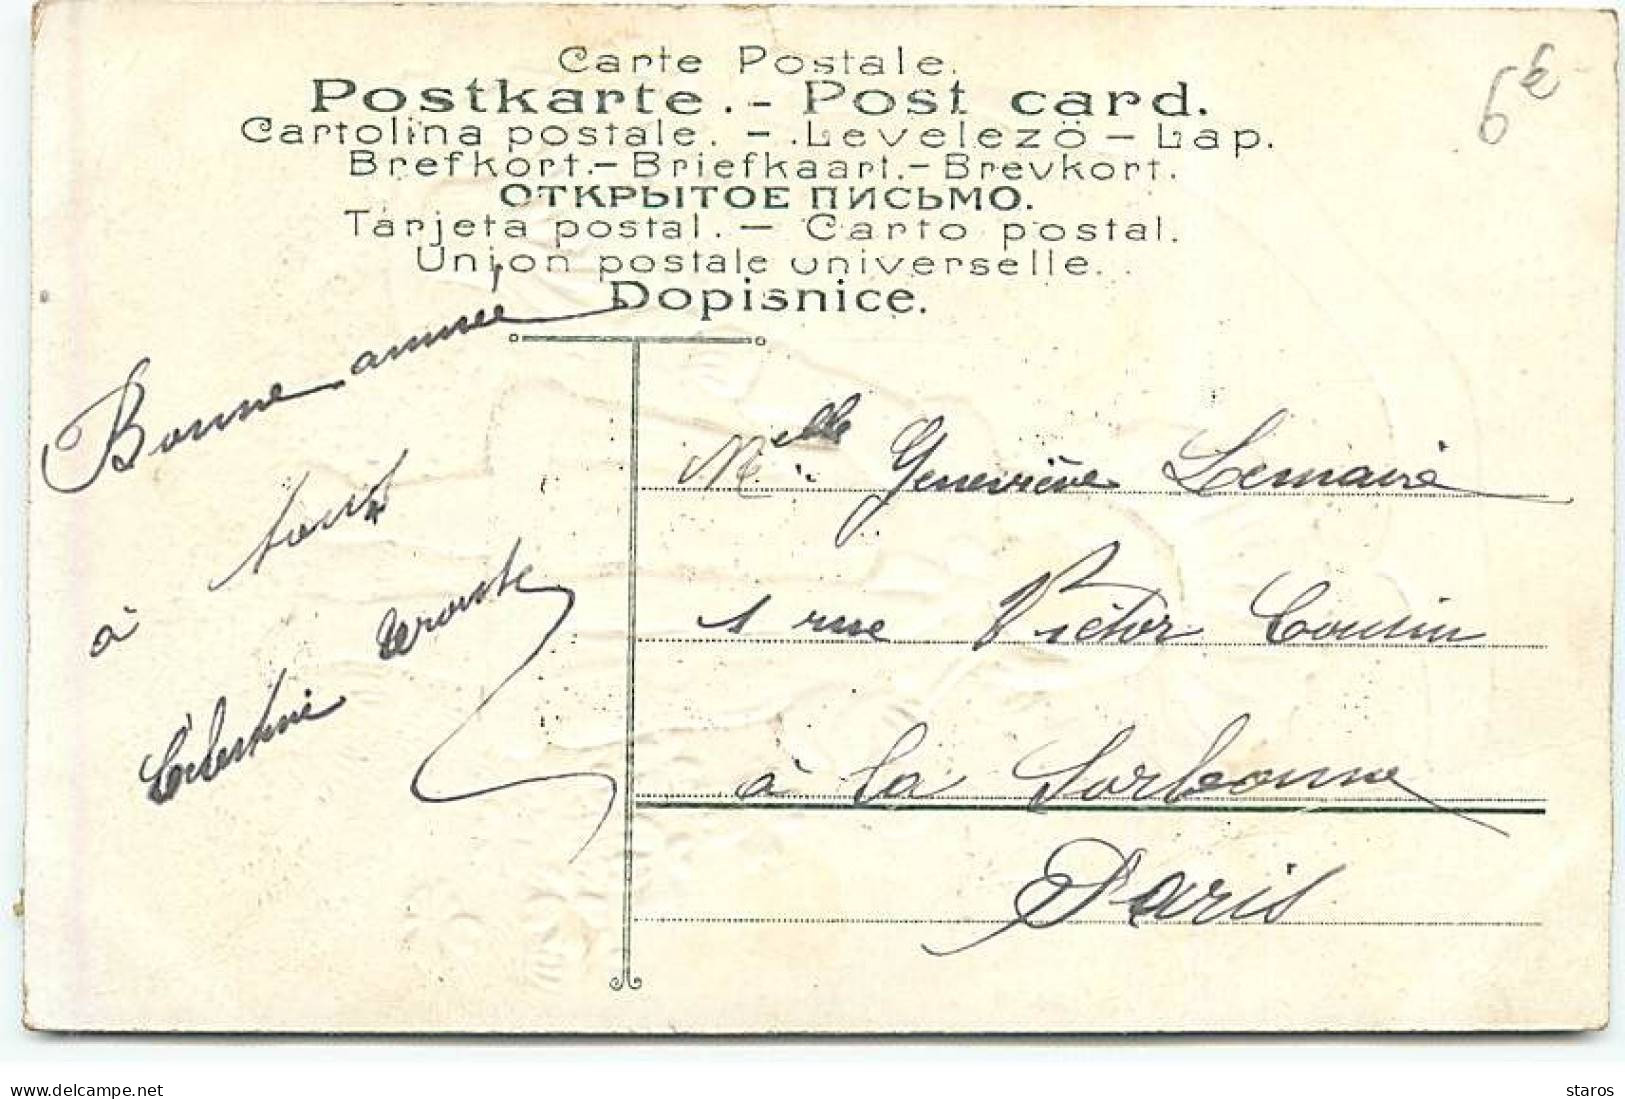 Carte Postale.
Postkarte. - Post card.
Cartolina postale. - Levelezö - Lap.
Brefkort. - Briefkaart. - Brevkort.
ОТКРЫТОЕ ПИСЬМО.
Tarjeta postal. - Carto postal.
Union postale universelle.
Dopisnice.
6€
Bonne année
à tous
Célestine
Melle Geneviève Lemaire
1 rue Victor Cousin
à la Sorbonne
Paris
delcampe.net
staros